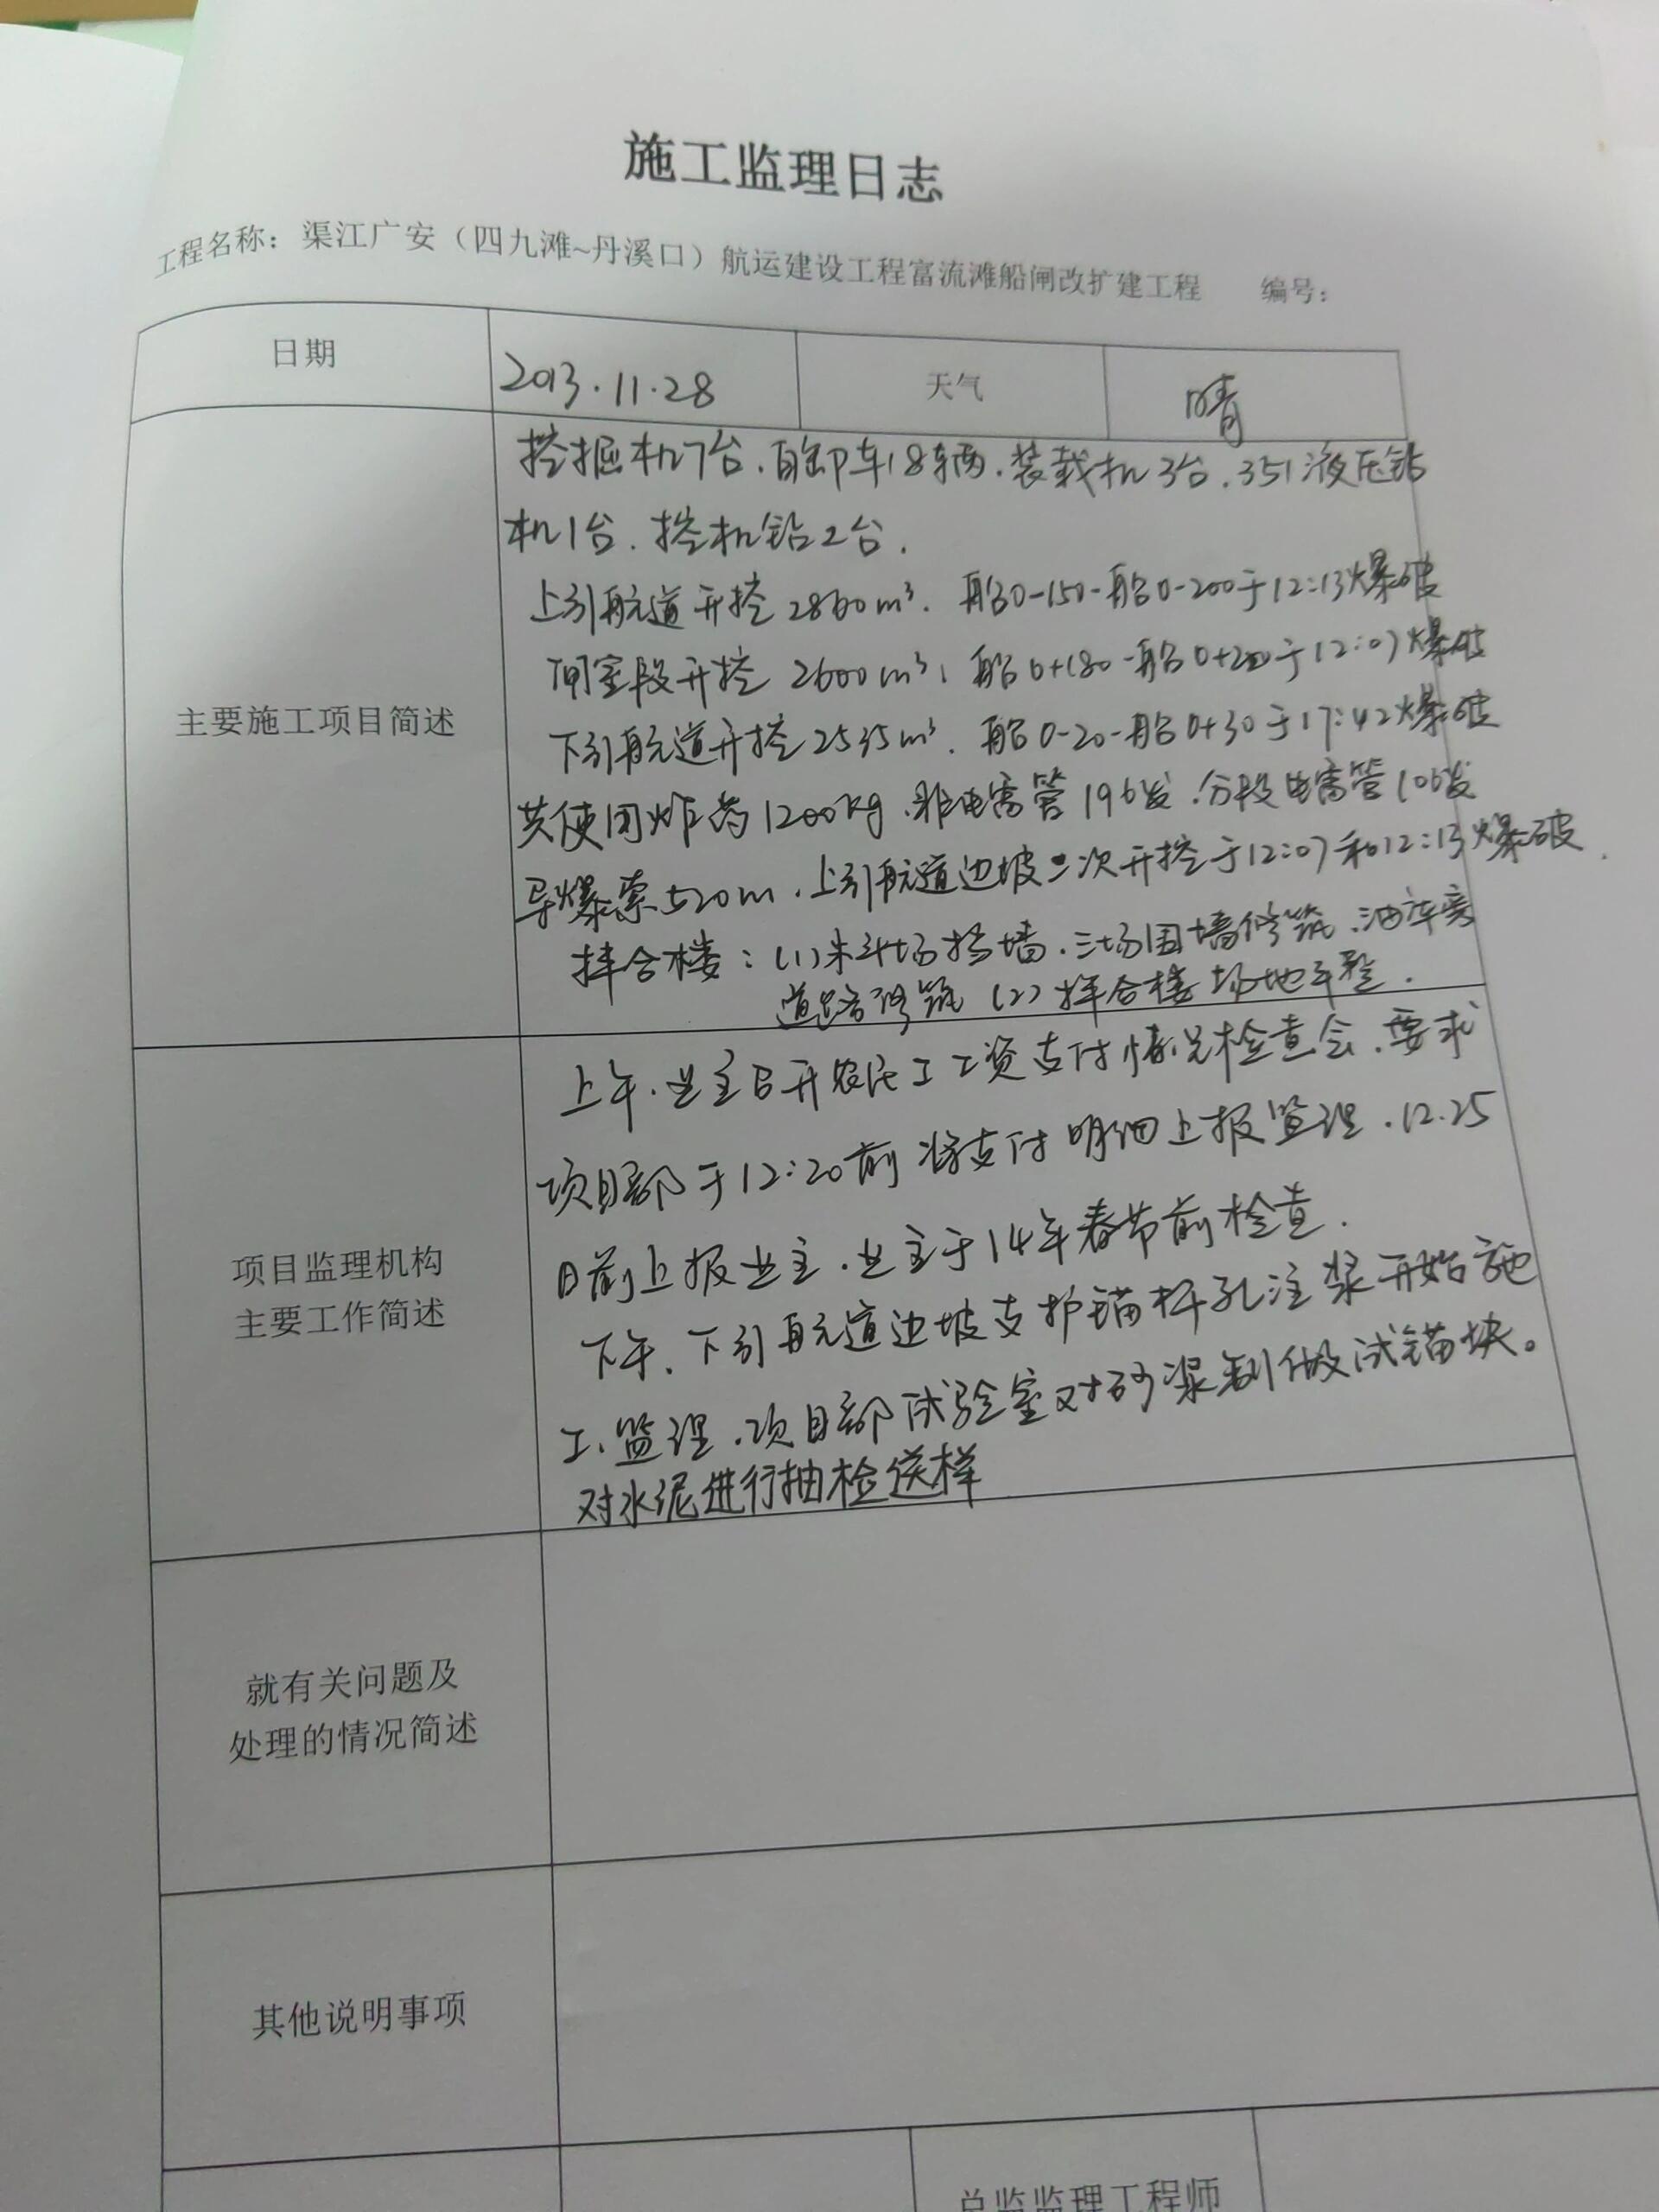 施工监理日志
工程名称：渠江广安（四九滩~丹溪口）航运建设工程富流滩船闸改扩建工程 编号：
日期 2013.11.28 天气 晴
挖掘机7台.自卸车18辆.装载机3台.351液压钻
机1台.挖机钻2台.
上引航道开挖2860m³.船0-150-船0-200于12:13爆破
闸室段开挖2600m³,船0+180-船0+200于12:07爆破
主要施工项目简述
下引航道开挖2535m³.船0-20-船0+30于17:42爆破
共使用炸药1200kg.非电雷管196发.分段电雷管106发
导爆索520m.上引航道边坡二次开挖于12:07和12:13爆破.
拌合楼：(1)料场挡墙.围墙修筑.油库
道路修筑(2)拌合楼场地平整.
上午.业主召开农民工工资支付情况检查会.要求
项目部于12:20前将支付明细上报监理.12.25
日前上报业主.业主于14年春节前检查.
项目监理机构
主要工作简述
下午.下引航道边坡支护锚杆孔注浆开始施
工.监理.项目部试验室对砂浆制做试锚块。
对水泥进行抽检送样
就有关问题及
处理的情况简述
其他说明事项
总监监理工程师